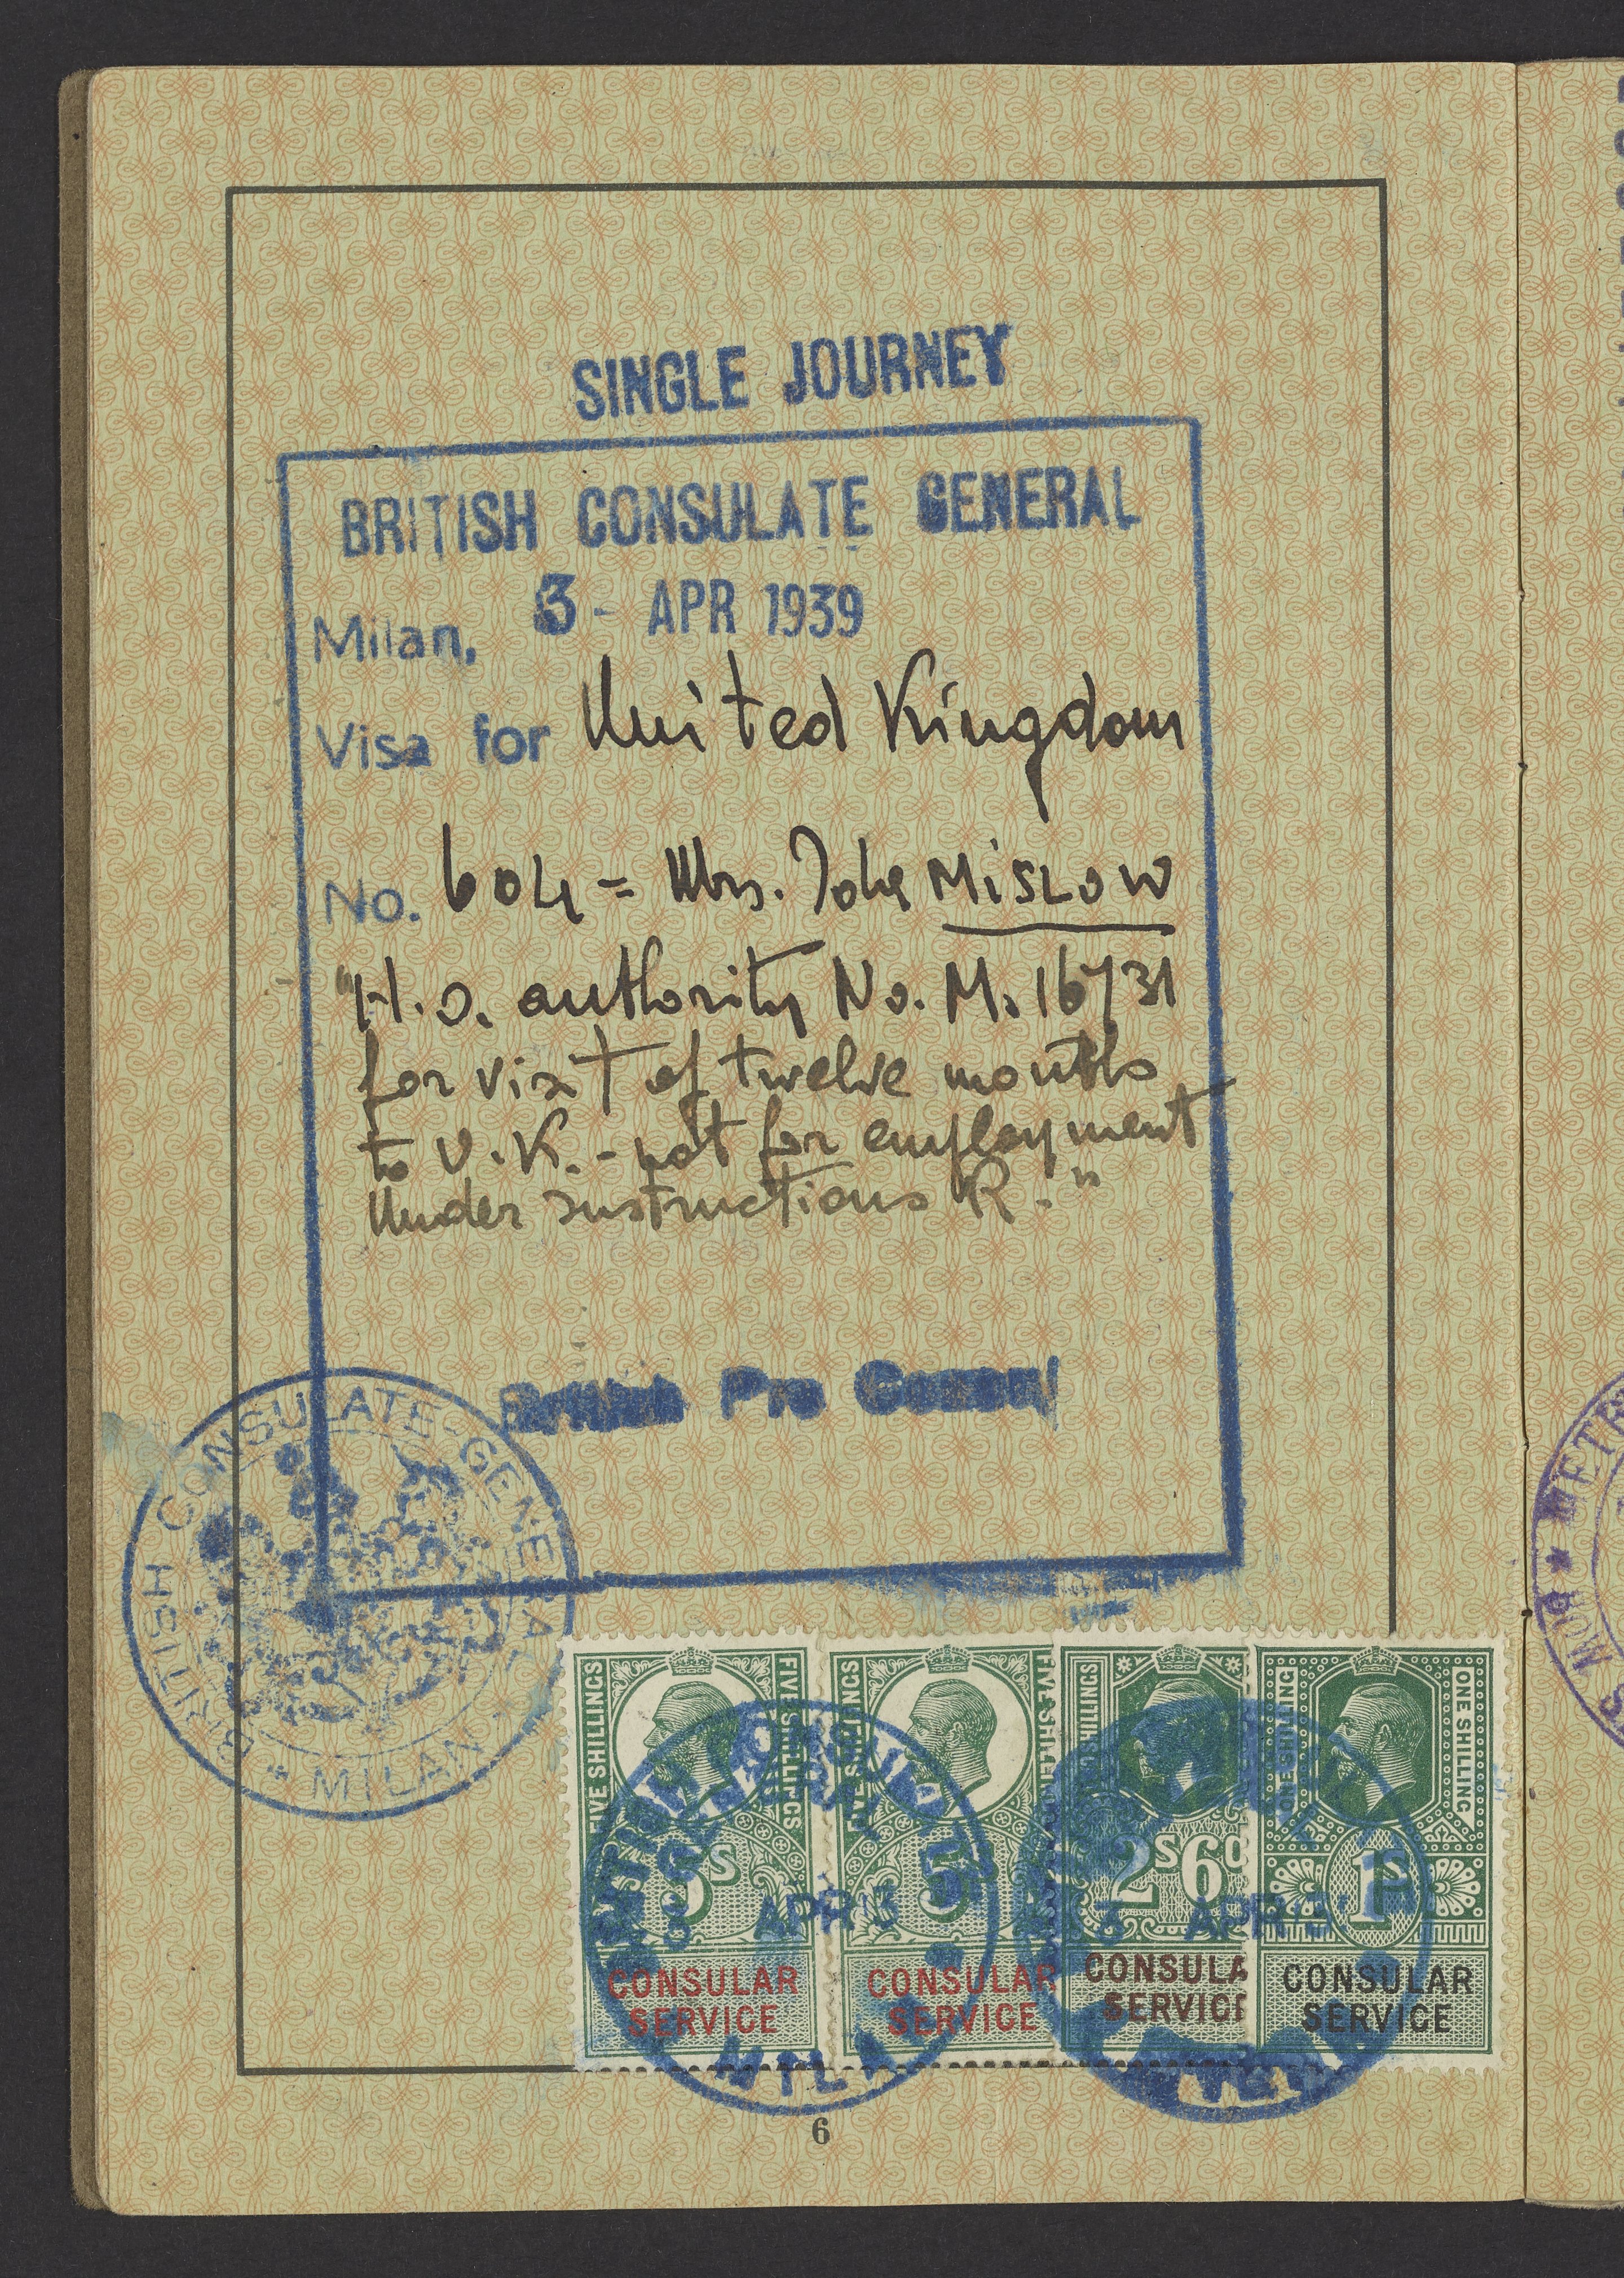 SINGLE JOURNEY
BRITISH CONSULATE GENERAL
Milan, 3 - APR 1939
Visa for United Kingdom
No. 604 = Mrs. MISLOW
"H.O. authority No. M. 16731
for visit of twelve months
to U.K. - not for employment
Under instructions R."
British Pro Consul
BRITISH CONSULATE-GENERAL
* MILAN *
FIVE SHILLINGS FIVE SHILLINGS
5s
CONSULAR
SERVICE
FIVE SHILLINGS FIVE SHILLINGS
5s
CONSULAR
SERVICE
SHILLINGS
2s6d
CONSULA
SERVICE
ONE SHILLING ONE SHILLING
1s
CONSULAR
SERVICE
3 APR 3
MILA
6
METR